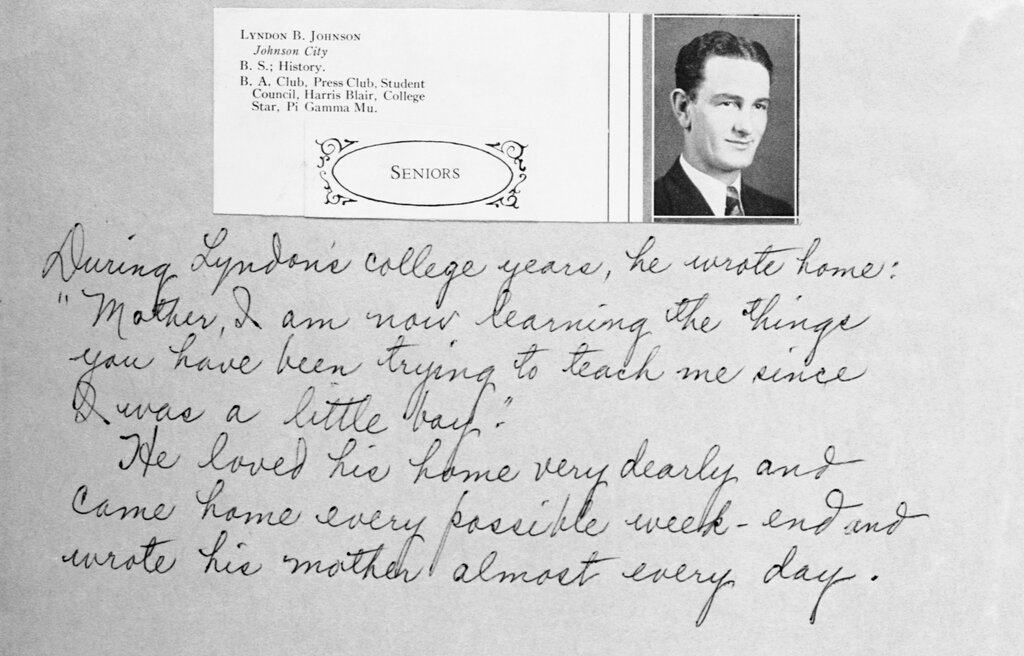 LYNDON B. JOHNSON
Johnson City
B. S.; History.
B. A. Club, Press Club, Student
Council, Harris Blair, College
Star, Pi Gamma Mu.
SENIORS
During Lyndon's college years, he wrote home:
"Mother, I am now learning the things
you have been trying to teach me since
I was a little boy."
He loved his home very dearly and
came home every possible week-end and
wrote his mother almost every day.